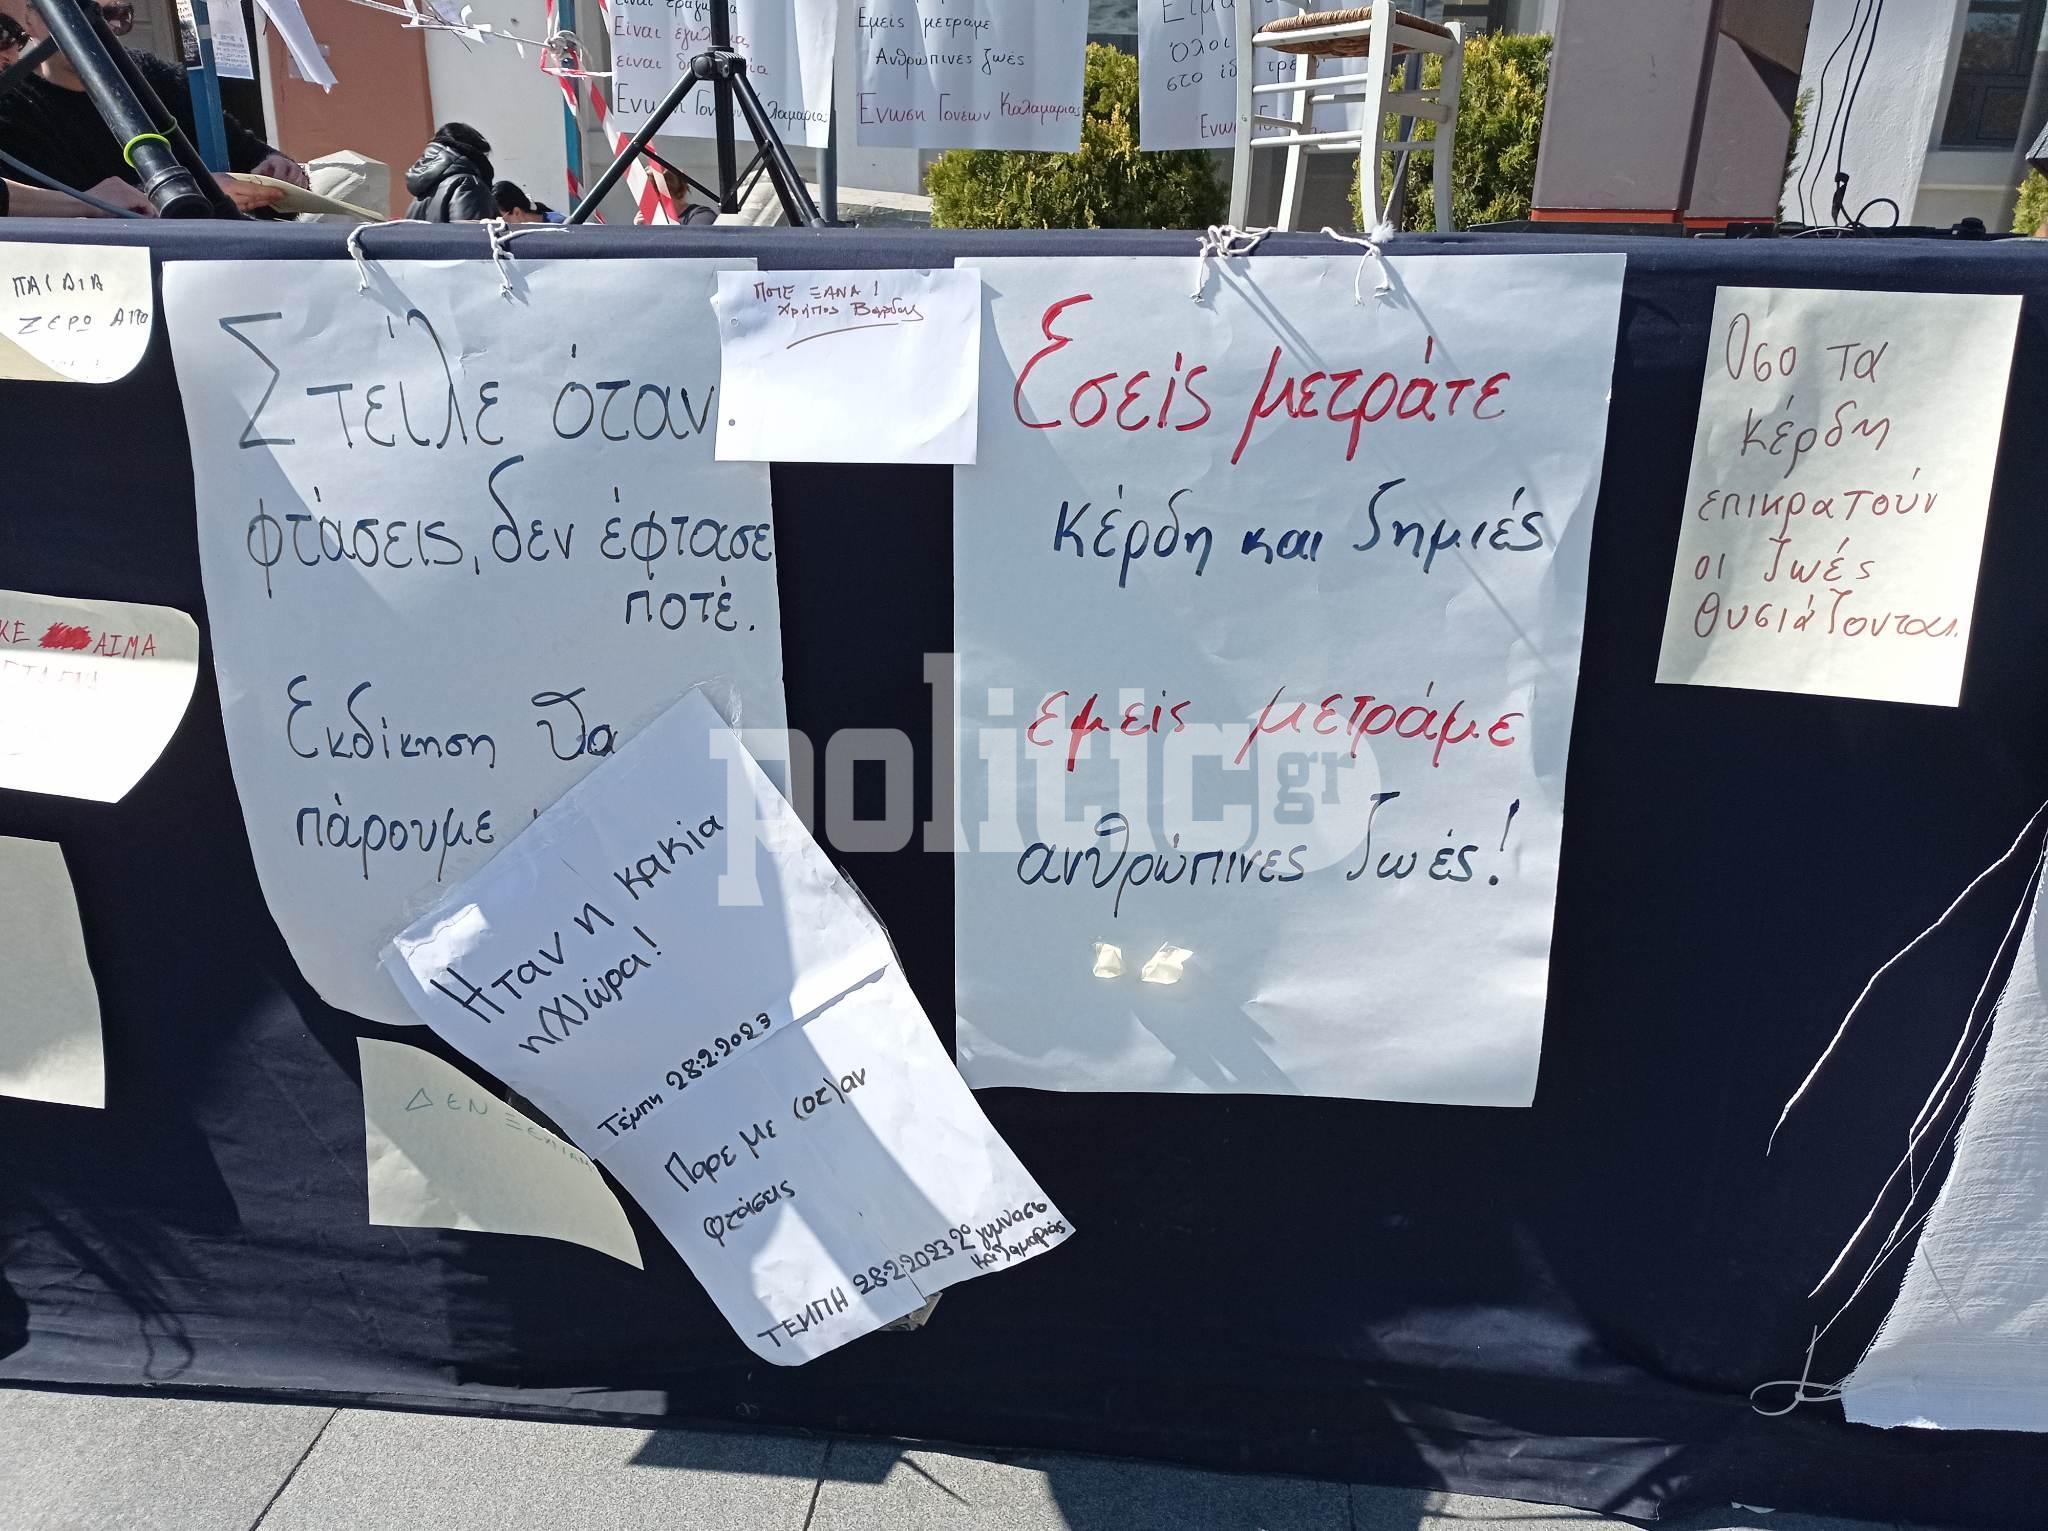 Είναι εγκλημα
είναι
Ένωση Γονέων Καλαμαριάς
Εμείς μετράμε
Ανθρώπινες ζωές
Ένωση Γονέων Καλαμαριάς
Όλοι
στο ίδ
ΠΑΙΔΙΑ
ΖΕΡΩ ΑΠΟ
Στείλε όταν
φτάσεις, δεν έφτασε
ποτέ.
Εκδίκηση θα
πάρουμε
ΠΟΤΕ ΞΑΝΑ!
Εσείς μετράτε
κέρδη και ζημιές
εμείς μετράμε
ανθρώπινες ζωές!
Οσο τα
κέρδη
επικρατούν
οι ζωές
θυσιάζονται.
ΚΕ ΑΙΜΑ
Ηταν η κακία
η(Χ)ώρα!
Τέμπη 28.2.2023
Παρε με (οτ)αν
φτάσεις
ΤΕΜΠΗ 28.2.2023 2ο γυμνασιο
Καλαμαριάς
ΔΕΝ
politic.gr